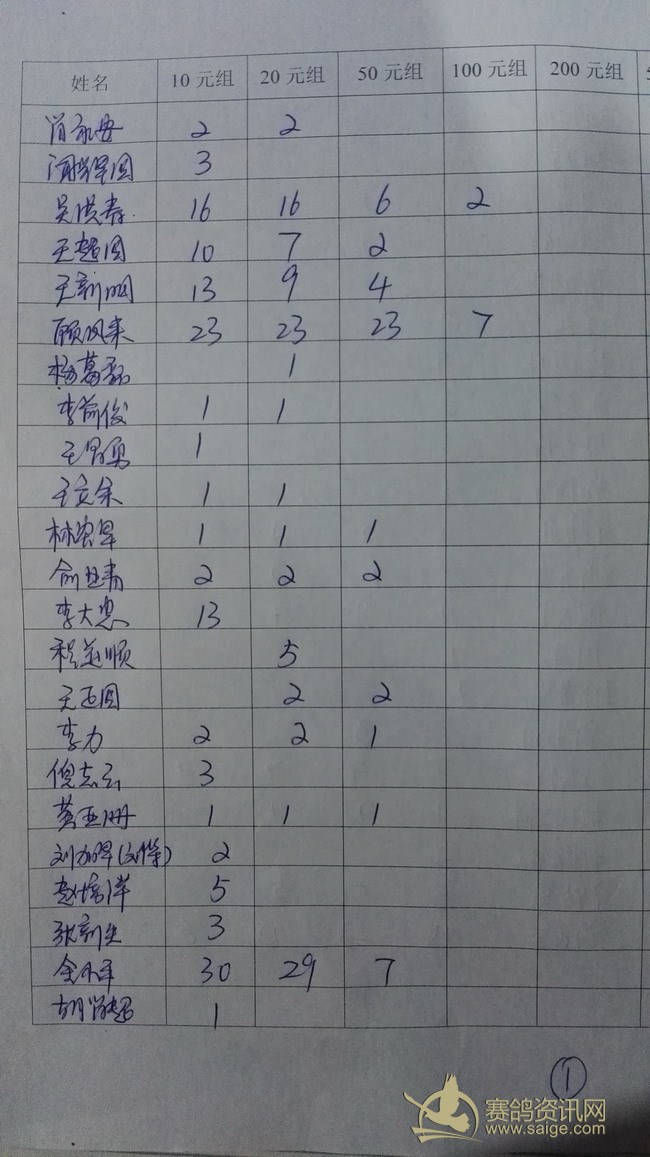 姓名 10元组 20元组 50元组 100元组 200元组
2 2
3
吴洪春 16 16 6 2
王超国 10 7 2
王新明 13 9 4
顾凤来 23 23 23 7
杨葛磊 1
李前俊 1 1
王 勇 1
王立余 1 1
林 1 1 1
俞 青 2 2 2
李大忠 13
程 顺 5
王正国 2 2
李力 2 2 1
倪志云 3
黄亚珊 1 1 1
刘 2
赵培洋 5
张 3
金 30 29 7
胡 超 1
1
赛鸽资讯网
www.saige.com